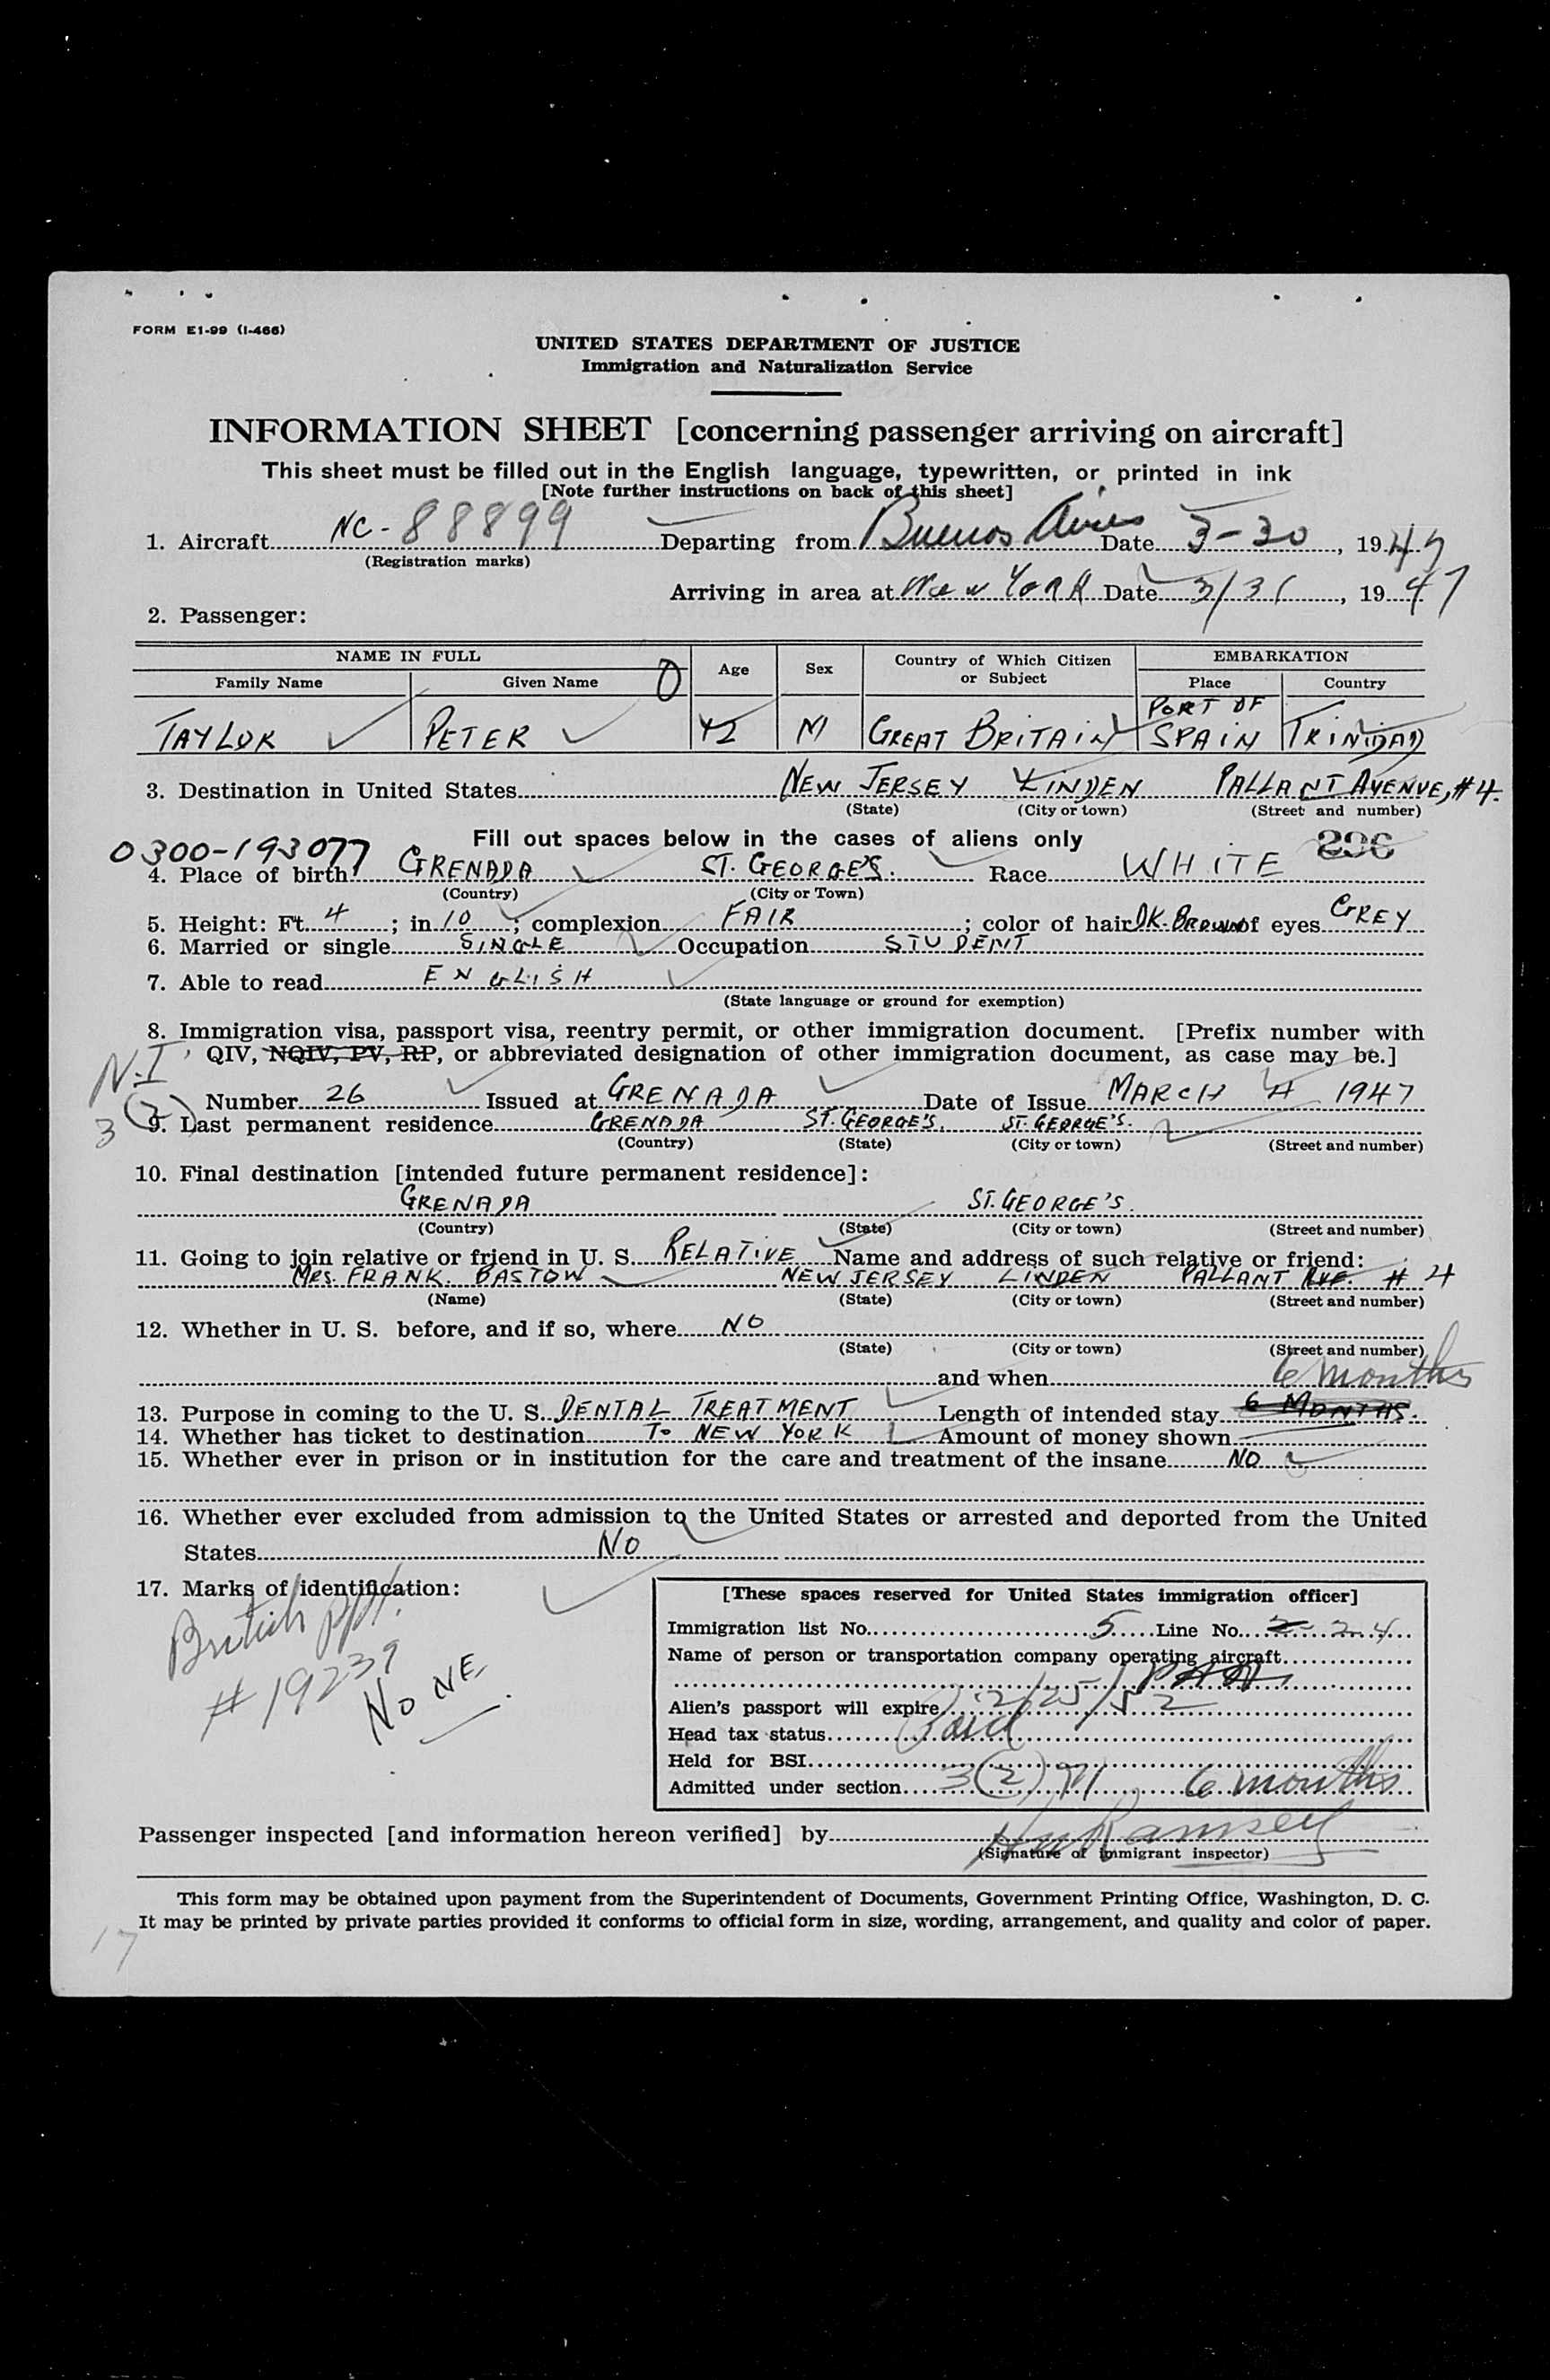 FORM E1-99 (I-466)
UNITED STATES DEPARTMENT OF JUSTICE
Immigration and Naturalization Service
INFORMATION SHEET [concerning passenger arriving on aircraft]
This sheet must be filled out in the English language, typewritten, or printed in ink
[Note further instructions on back of this sheet]
1. Aircraft NC-88899 Departing from Buenos Aires Date 3-30, 1947
(Registration marks)
Arriving in area at New York Date 3/31, 1947
2. Passenger:
NAME IN FULL Age Sex Country of Which Citizen or Subject EMBARKATION
Family Name Given Name Place Country
TAYLOR PETER M GREAT BRITAIN PORT OF SPAIN TRINIDAD
3. Destination in United States NEW JERSEY LINDEN PALLANT AVENUE, #4.
(State) (City or town) (Street and number)
Fill out spaces below in the cases of aliens only 296
0300-193077
4. Place of birth GRENADA ST. GEORGE'S. Race WHITE
(Country) (City or Town)
5. Height: Ft. 4; in 10; complexion FAIR; color of hair DK. BROWN of eyes GREY
6. Married or single SINGLE Occupation STUDENT
7. Able to read ENGLISH
(State language or ground for exemption)
8. Immigration visa, passport visa, reentry permit, or other immigration document. [Prefix number with
N.I QIV, NQIV, PV, RP, or abbreviated designation of other immigration document, as case may be.]
3(2) Number 26 Issued at GRENADA Date of Issue MARCH 4 1947
9. Last permanent residence GRENADA ST. GEORGE'S. ST. GEORGE'S.
(Country) (State) (City or town) (Street and number)
10. Final destination [intended future permanent residence]:
GRENADA ST. GEORGE'S.
(Country) (State) (City or town) (Street and number)
11. Going to join relative or friend in U. S. RELATIVE Name and address of such relative or friend:
MRS. FRANK BASTOW NEW JERSEY LINDEN PALLANT AVE. # 4
(Name) (State) (City or town) (Street and number)
12. Whether in U. S. before, and if so, where NO
(State) (City or town) (Street and number)
and when 6 months
13. Purpose in coming to the U. S. DENTAL TREATMENT Length of intended stay 6 MONTHS.
14. Whether has ticket to destination TO NEW YORK Amount of money shown
15. Whether ever in prison or in institution for the care and treatment of the insane NO
16. Whether ever excluded from admission to the United States or arrested and deported from the United
States NO
17. Marks of identification:
British ppt.
# 19239
NONE
[These spaces reserved for United States immigration officer]
Immigration list No. 5 Line No. 2 24
Name of person or transportation company operating aircraft
PAA
Alien's passport will expire 12/25/52
Head tax status Paid
Held for BSI
Admitted under section 3(2) 6 months
Passenger inspected [and information hereon verified] by Ramsey
(Signature of immigrant inspector)
This form may be obtained upon payment from the Superintendent of Documents, Government Printing Office, Washington, D. C.
It may be printed by private parties provided it conforms to official form in size, wording, arrangement, and quality and color of paper.
17